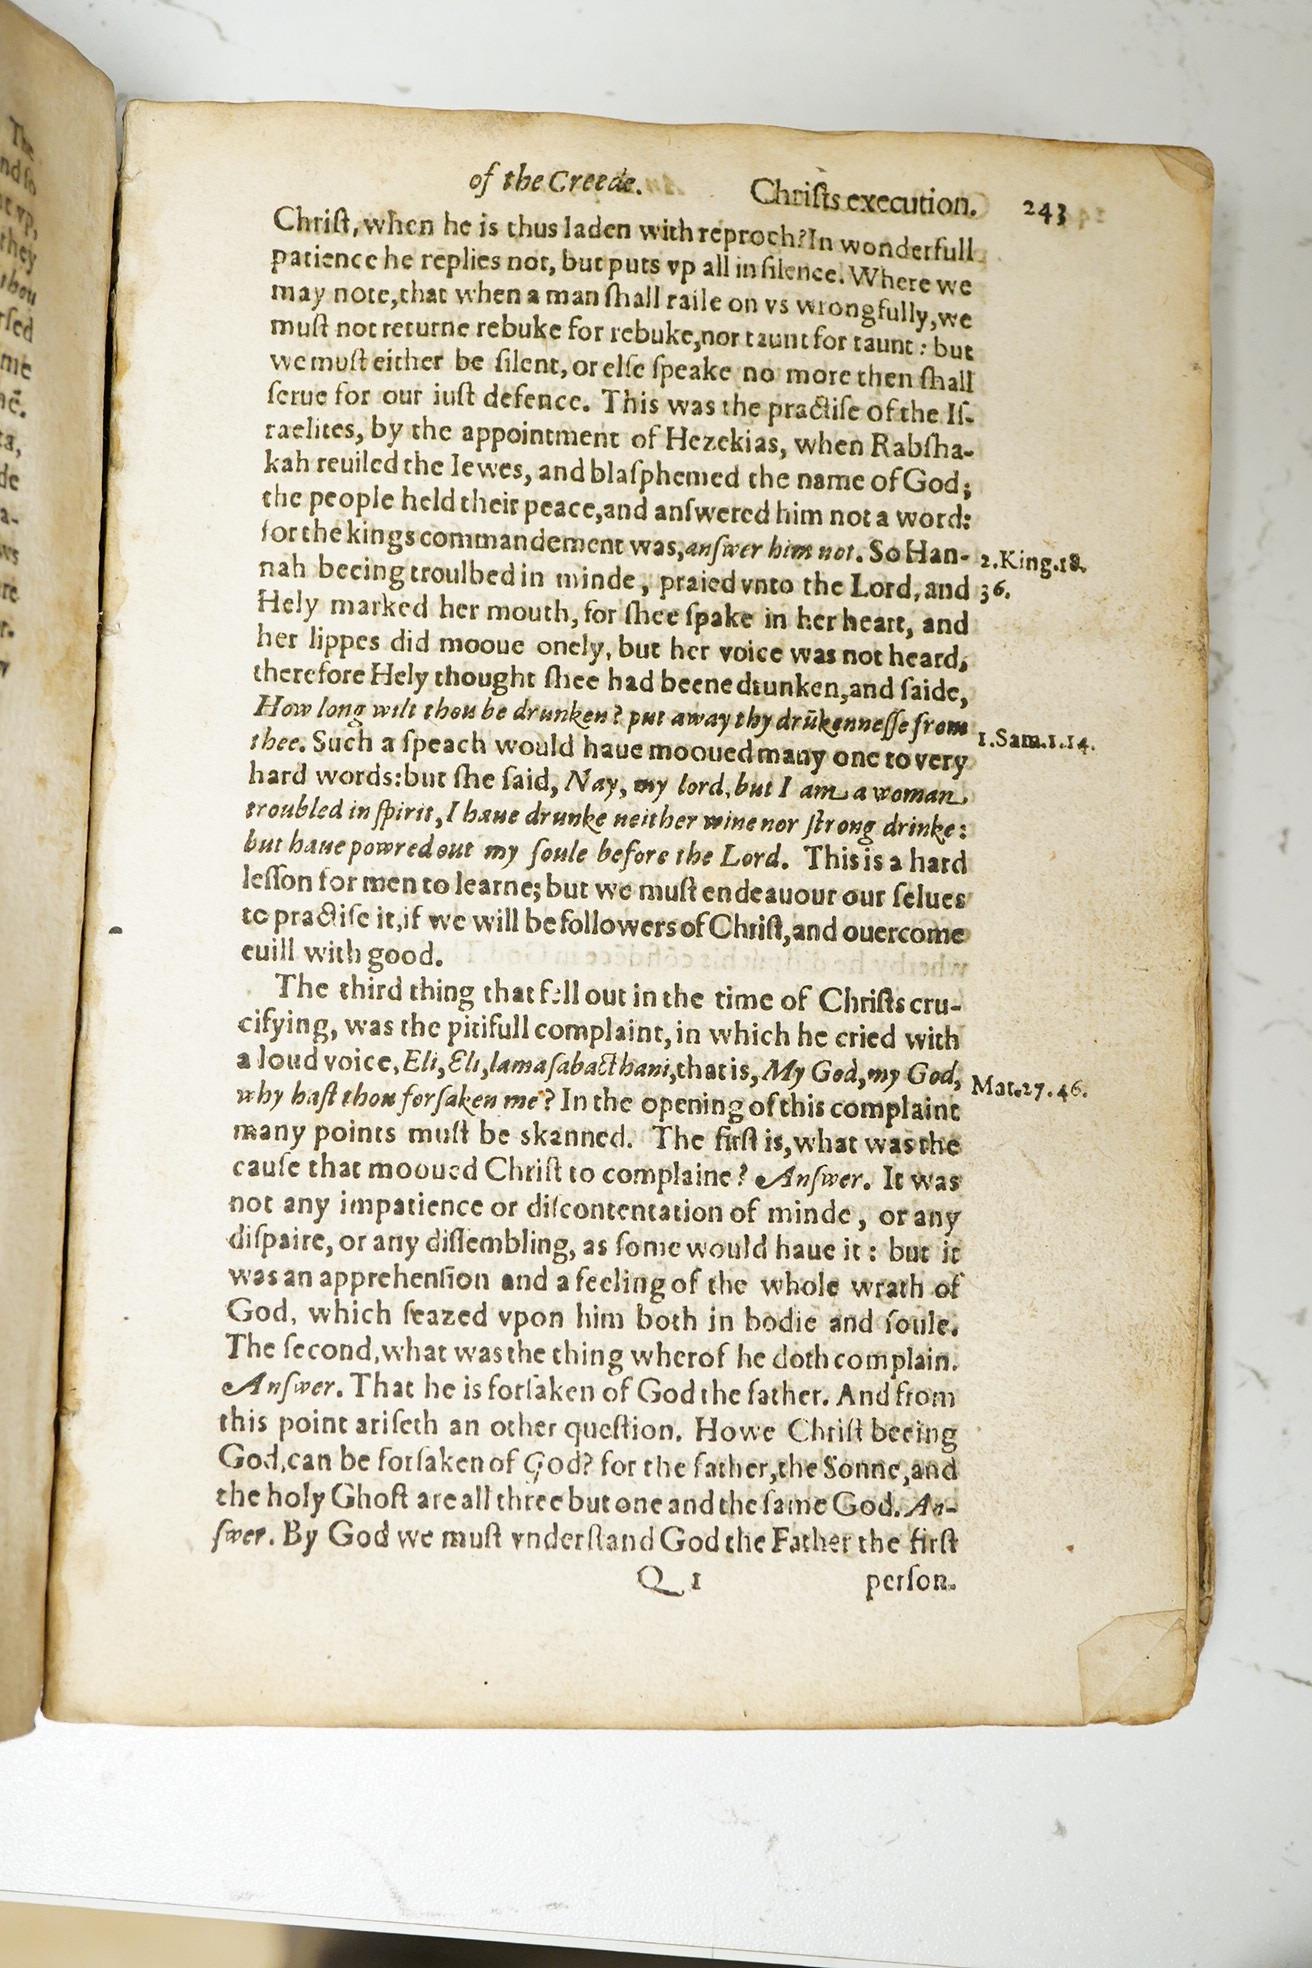 of the Creede. Chriſts execution. 243
Chriſt, when he is thus laden with reproch? In wonderfull
patience he replies not, but puts vp all in ſilence. Where we
may note, that when a man ſhall raile on vs wrongfully, we
muſt not returne rebuke for rebuke, nor taunt for taunt: but
we muſt either be ſilent, or elſe ſpeake no more then ſhall
ſerue for our iuſt defence. This was the practiſe of the Iſ-
raelites, by the appointment of Hezekias, when Rabſha-
kah reuiled the Iewes, and blaſphemed the name of God;
the people held their peace, and anſwered him not a word:
for the kings commandement was, anſwer him not. So Han-
2.King.18.
36.
nah beeing troulbed in minde, praied vnto the Lord, and
Hely marked her mouth, for ſhee ſpake in her heart, and
her lippes did mooue onely, but her voice was not heard,
therefore Hely thought ſhee had beene drunken, and ſaide,
How long wilt thou be drunken? put away thy drūkenneſſe from
1.Sam.1.14.
thee. Such a ſpeach would haue mooued many one to very
hard words: but ſhe ſaid, Nay, my lord, but I am a woman
troubled in ſpirit, I haue drunke neither wine nor ſtrong drinke:
but haue powred out my ſoule before the Lord. This is a hard
leſſon for men to learne; but we muſt endeauour our ſelues
to practiſe it, if we will be followers of Chriſt, and ouercome
euill with good.
The third thing that fell out in the time of Chriſts cru-
cifying, was the pitifull complaint, in which he cried with
a loud voice, Eli, Eli, lamaſabacthani, that is, My God, my God,
Mat.27.46.
why haſt thou forſaken me? In the opening of this complaint
many points muſt be skanned. The firſt is, what was the
cauſe that mooued Chriſt to complaine? Anſwer. It was
not any impatience or diſcontentation of minde, or any
diſpaire, or any diſſembling, as ſome would haue it: but it
was an apprehenſion and a feeling of the whole wrath of
God, which ſeazed vpon him both in bodie and ſoule.
The ſecond, what was the thing wherof he doth complain.
Anſwer. That he is forſaken of God the father. And from
this point ariſeth an other queſtion. Howe Chriſt beeing
God, can be forſaken of God? for the father, the Sonne, and
the holy Ghoſt are all three but one and the ſame God. An-
ſwer. By God we muſt vnderſtand God the Father the firſt
Q 1 perſon.